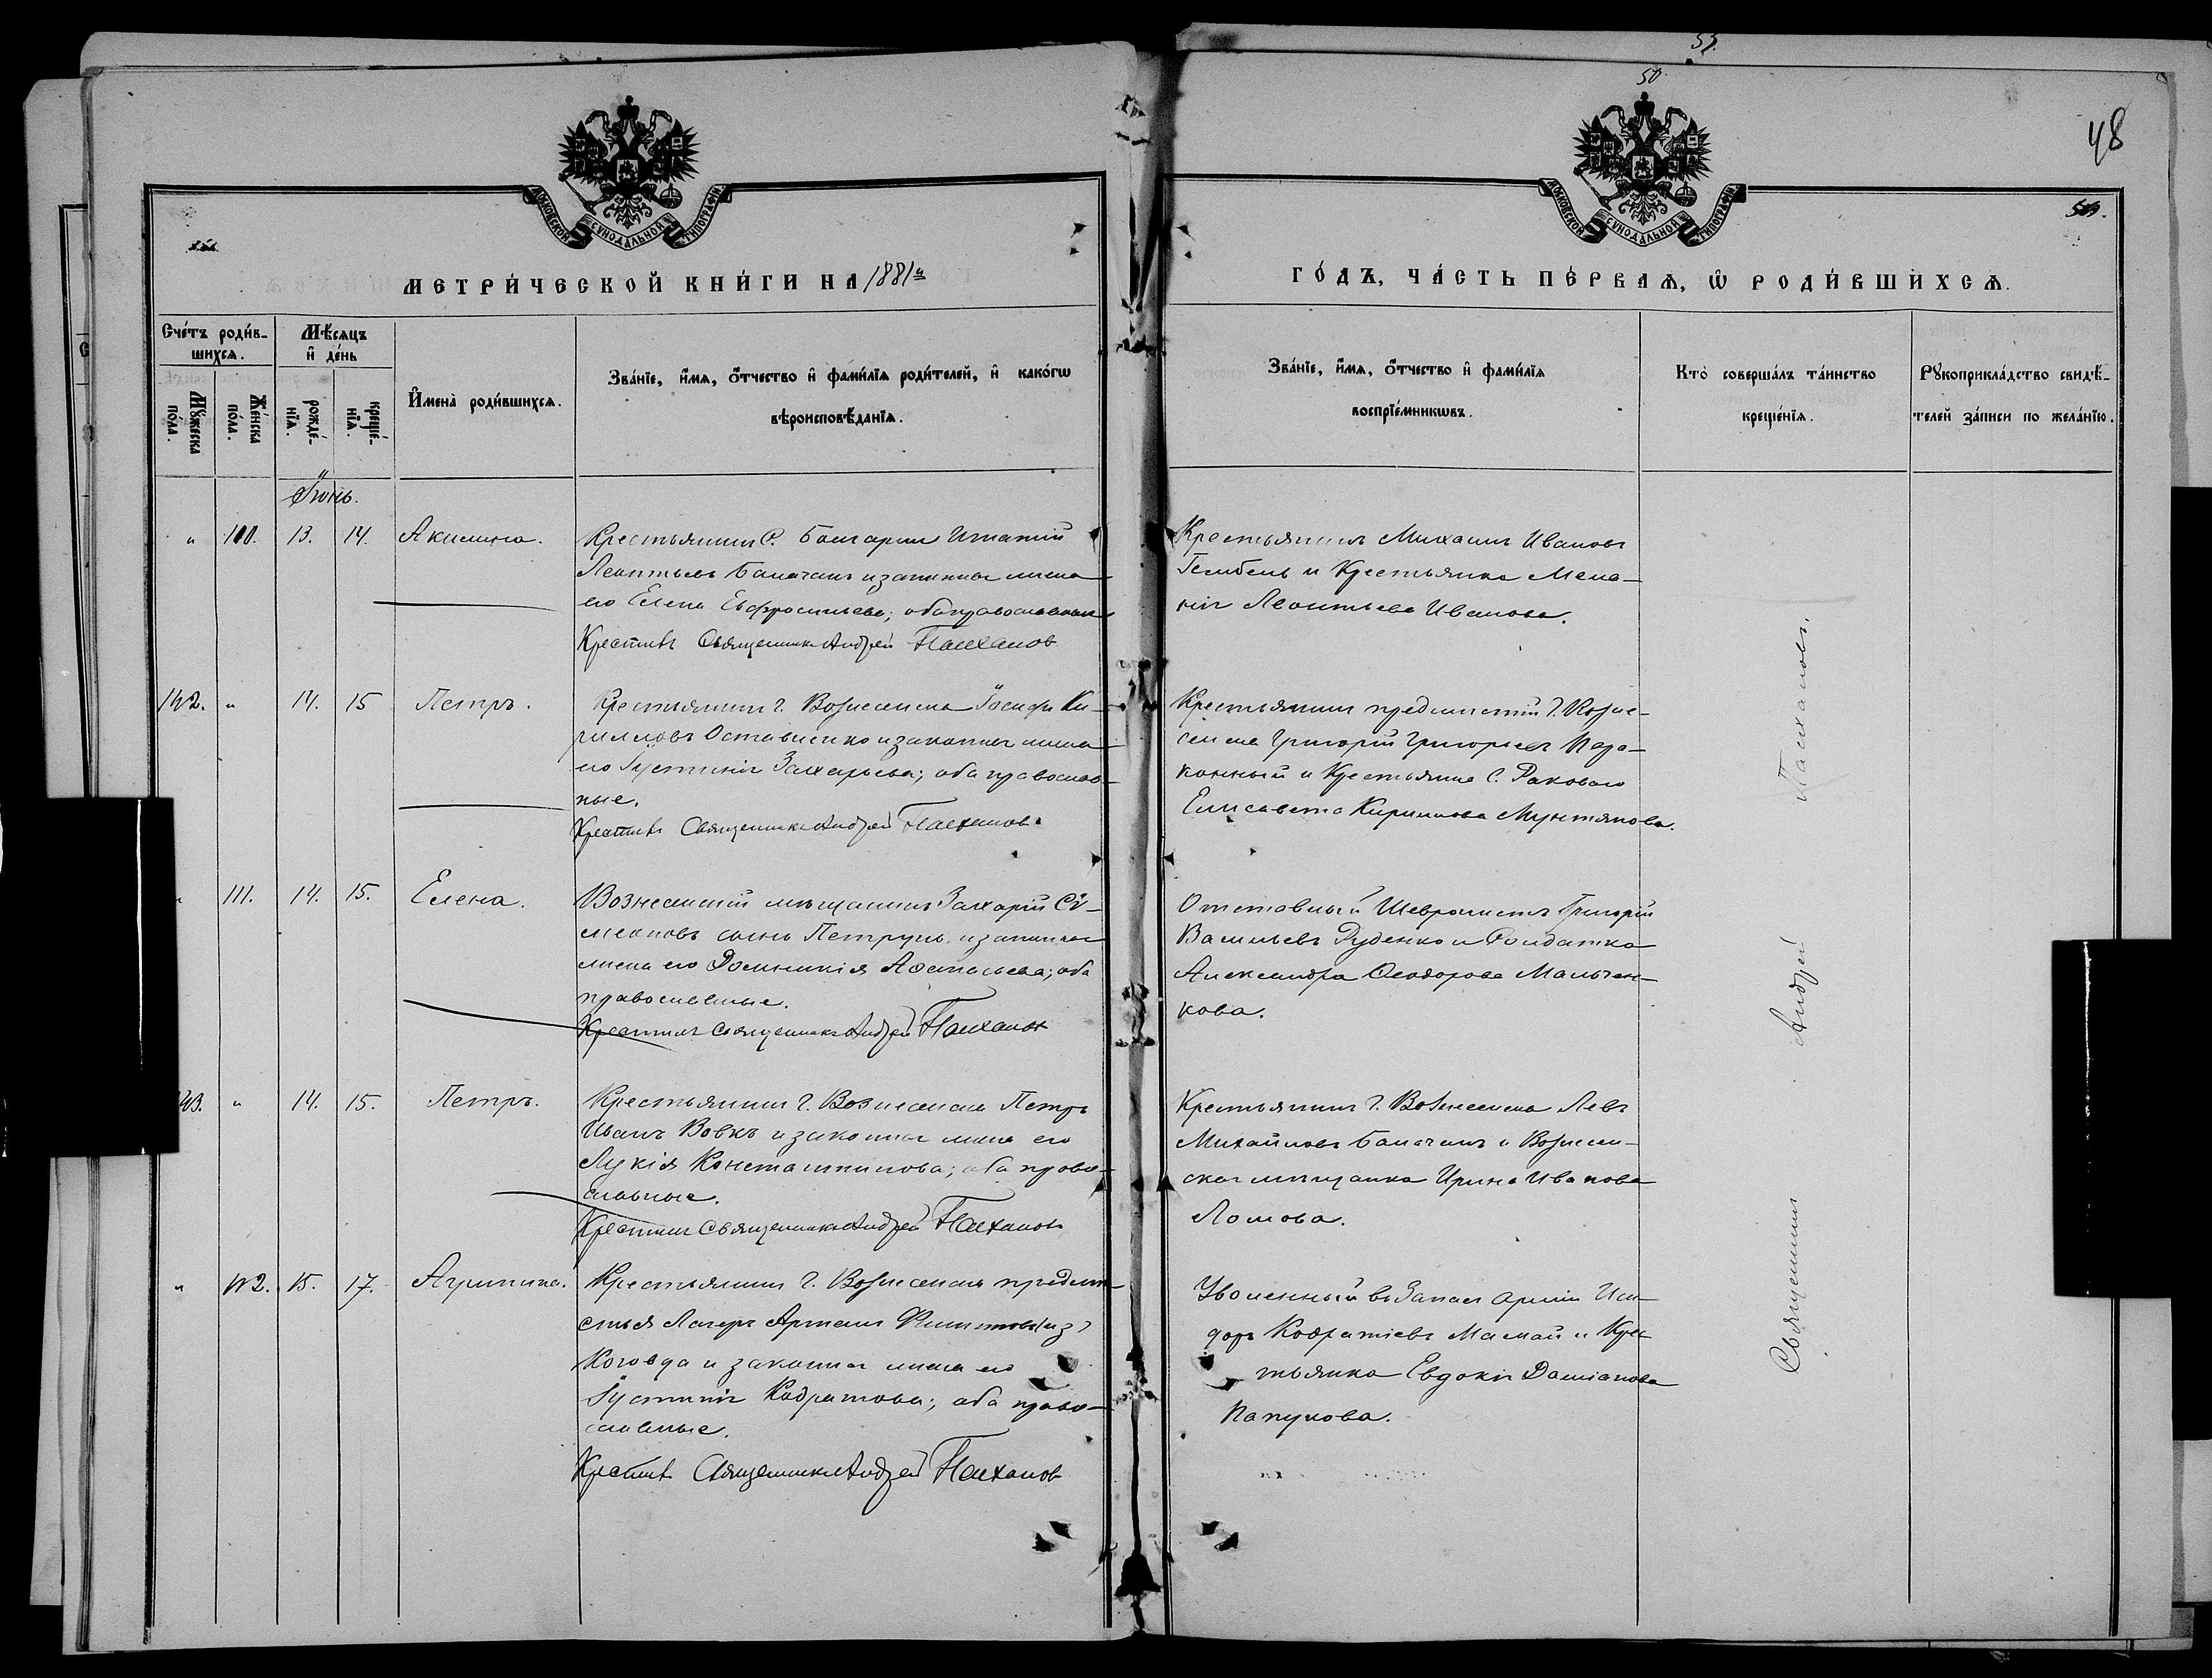 53.
50.
48
МОСКОВСКОЙ СѴНОДАЛЬНОЙ ТИПОГРАФІИ
МОСКОВСКОЙ СѴНОДАЛЬНОЙ ТИПОГРАФІИ
МЕТРИ́ЧЕСКОЙ КНИ́ГИ НА 1881й
ГО́ДЪ, ЧА́СТЬ ПЕ́РВАѦ, Ѡ҆ РОДИ́ВШИХСѦ.
Сче́тъ роди́в-
шихсѧ.
Мꙋ́жеска по́ла.
Же́нска по́ла.
Мѣ́сѧцъ
и҆ де́нь
рожде́-нїѧ.
креще́-нїѧ.
И҆мена̀ роди́вшихсѧ.
Зва́нїе, и҆́мѧ, ѻ҆́тчество и҆ фамѝлїѧ роди́телей, и҆ како́гѡ
вѣроисповѣ́данїѧ.
Зва́нїе, и҆́мѧ, ѻ҆́тчество и҆ фами́лїѧ
воспрїе́мникѡвъ.
Кто̀ соверша́лъ та́инство
креще́нїѧ.
Рꙋкоприкла́дство свидѣ́-
телей за́писи по жела́нїю.
Іюнь.
" 110. 13. 14. Акилина.
Крестьянинъ С. Болгарки Игнатій
Леонтьевъ Балачанъ и законная жена
его Елена Евфросиньева; оба православные
Крестилъ Священникъ Андрей Палхановъ
Крестьянинъ Михаилъ Ивановъ
Гембель и Крестьянка Мела-
нія Леонтьева Иванова.
142. " 14. 15 Петръ.
Крестьянинъ г. Вознесенска Іосифъ Ки-
рилловъ Оставненко и законная жена
его Іустинія Захарьева; оба православ-
ные.
Крестилъ Священникъ Андрей Палхановъ
Крестьянинъ предмѣстій г. Возне-
сенска Григорій Григорьевъ
и Крестьянка С. Раковаго
Елисавета Кириллова Мунтянова.
" 111. 14. 15. Елена.
Вознесенскій мѣщанинъ Захарій Сѵ-
меоновъ сынъ Петруць и законная
жена его Домникія Афанасьева; оба
православные.
Крестилъ Священникъ Андрей Палхановъ
Отставный Шевронистъ Григорій
Васильевъ Руденко и Солдатка
Александра Ѳеодорова Мальчен-
кова.
143. " 14. 15. Петръ.
Крестьянинъ г. Вознесенска Петръ
Иванъ Вовкъ и законная жена его
Лукія Константинова; оба право-
славные.
Крестилъ Священникъ Андрей Палхановъ
Крестьянинъ г. Вознесенска Левъ
Михайловъ Балачанъ и Вознесен-
ская мѣщанка Ирина Иванова
Ломова.
" 112. 15. 17. Агрипина.
Крестьянинъ г. Вознесенска предмѣ-
стья Лагерь Артемъ Филипповъ
и законная жена его
Іустинія Кодратова; оба право-
славные.
Крестилъ Священникъ Андрей Палхановъ
Уволенный въ Запасъ арміи Иси-
доръ Кодратіевъ Мамай и Крес-
тьянка Евдокія Даміанова
Папукова.
Священникъ Андрей Палхановъ.